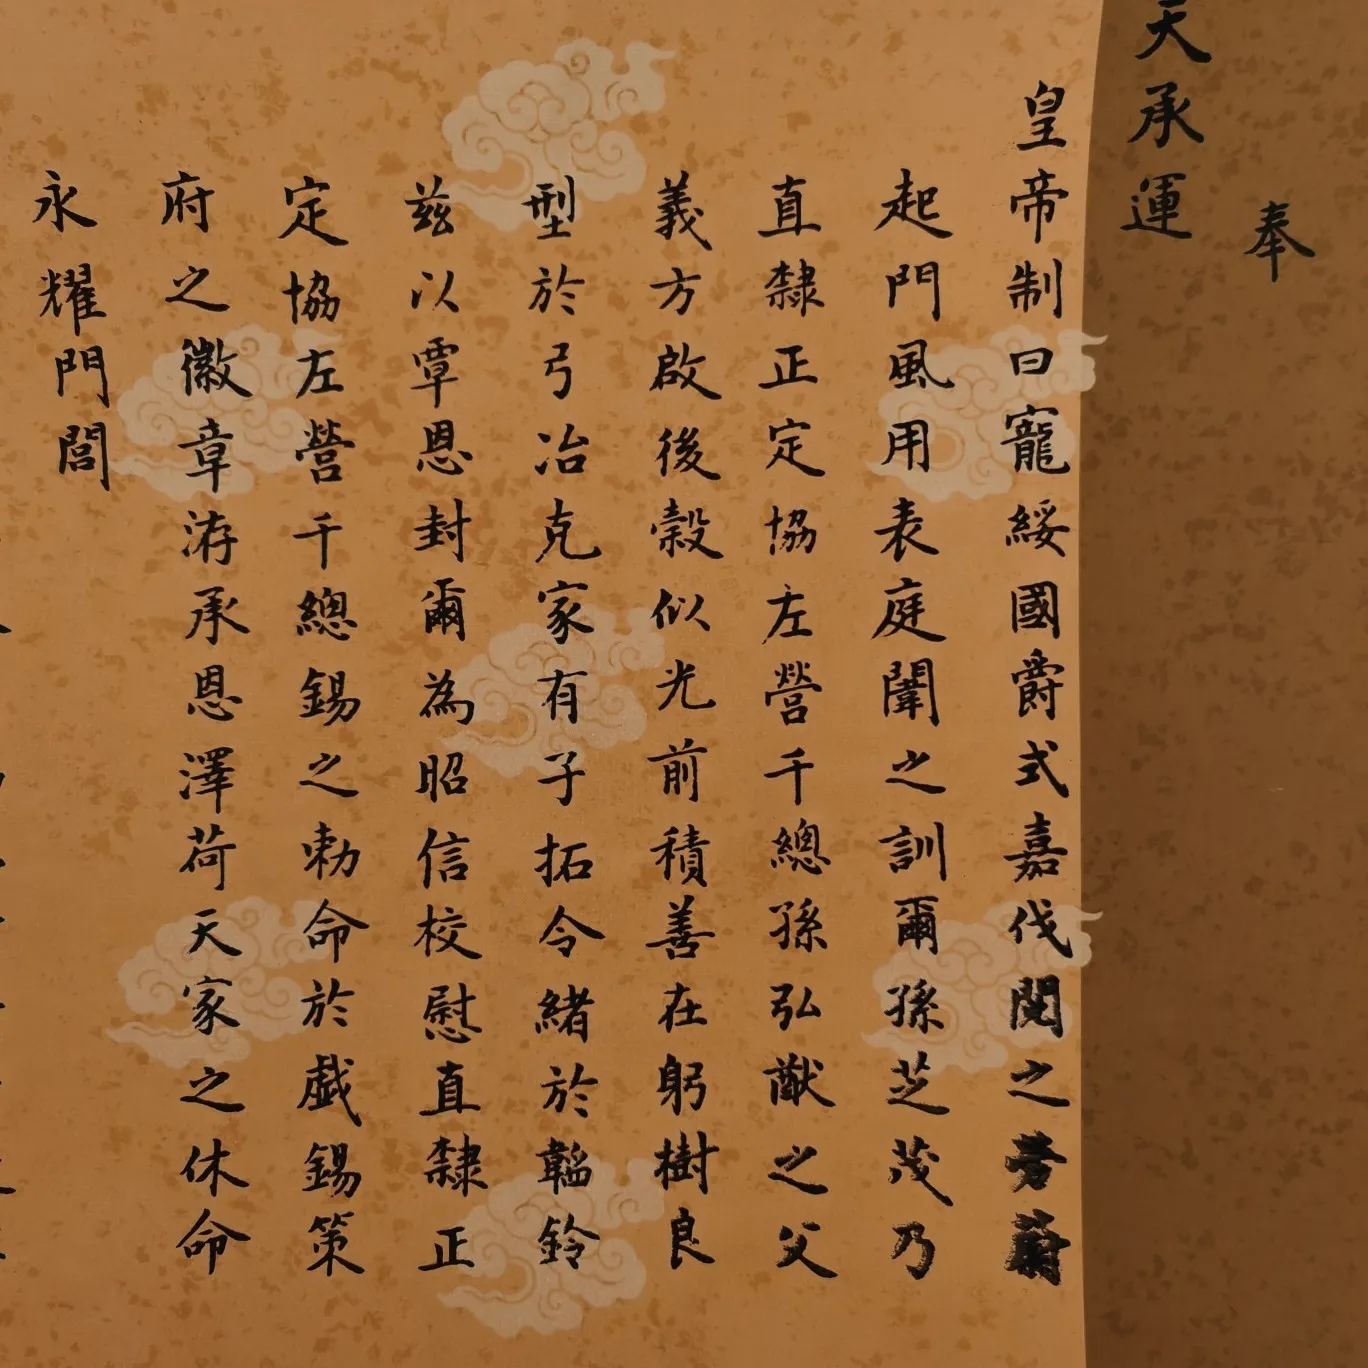 奉
天承運
皇帝制曰寵綏國爵式嘉伐閱之勞蔚
起門風用表庭闈之訓爾孫芝茂乃
直隸正定協左營千總孫弘猷之父
義方啟後穀似光前積善在躬樹良
型於弓冶克家有子拓令緒於韜鈴
茲以覃恩封爾為昭信校慰直隸正
定協左營千總錫之勅命於戲錫策
府之徽章洊承恩澤荷天家之休命
永耀門閭